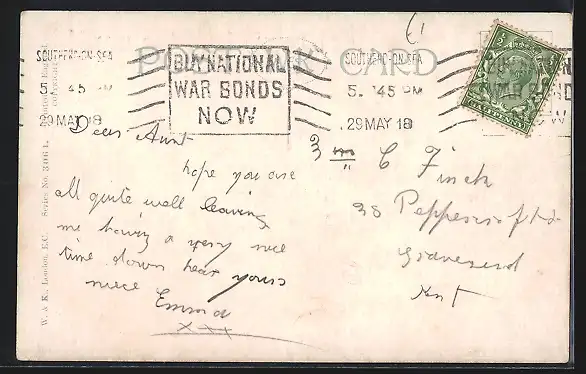 POST CARD
SOUTHEND-ON-SEA
5. 45 PM
29 MAY 18
BUY NATIONAL
WAR BONDS
NOW
SOUTHEND-ON-SEA
5. 45 PM
29 MAY 18
Dear Aunt
hope you are
all quite well leaving
me having a very nice
time down hear yours
niece Emma
xxx
C Finch
38
Gravesend
Knt
W. & K., London, E.C. Series No.
Printed in England